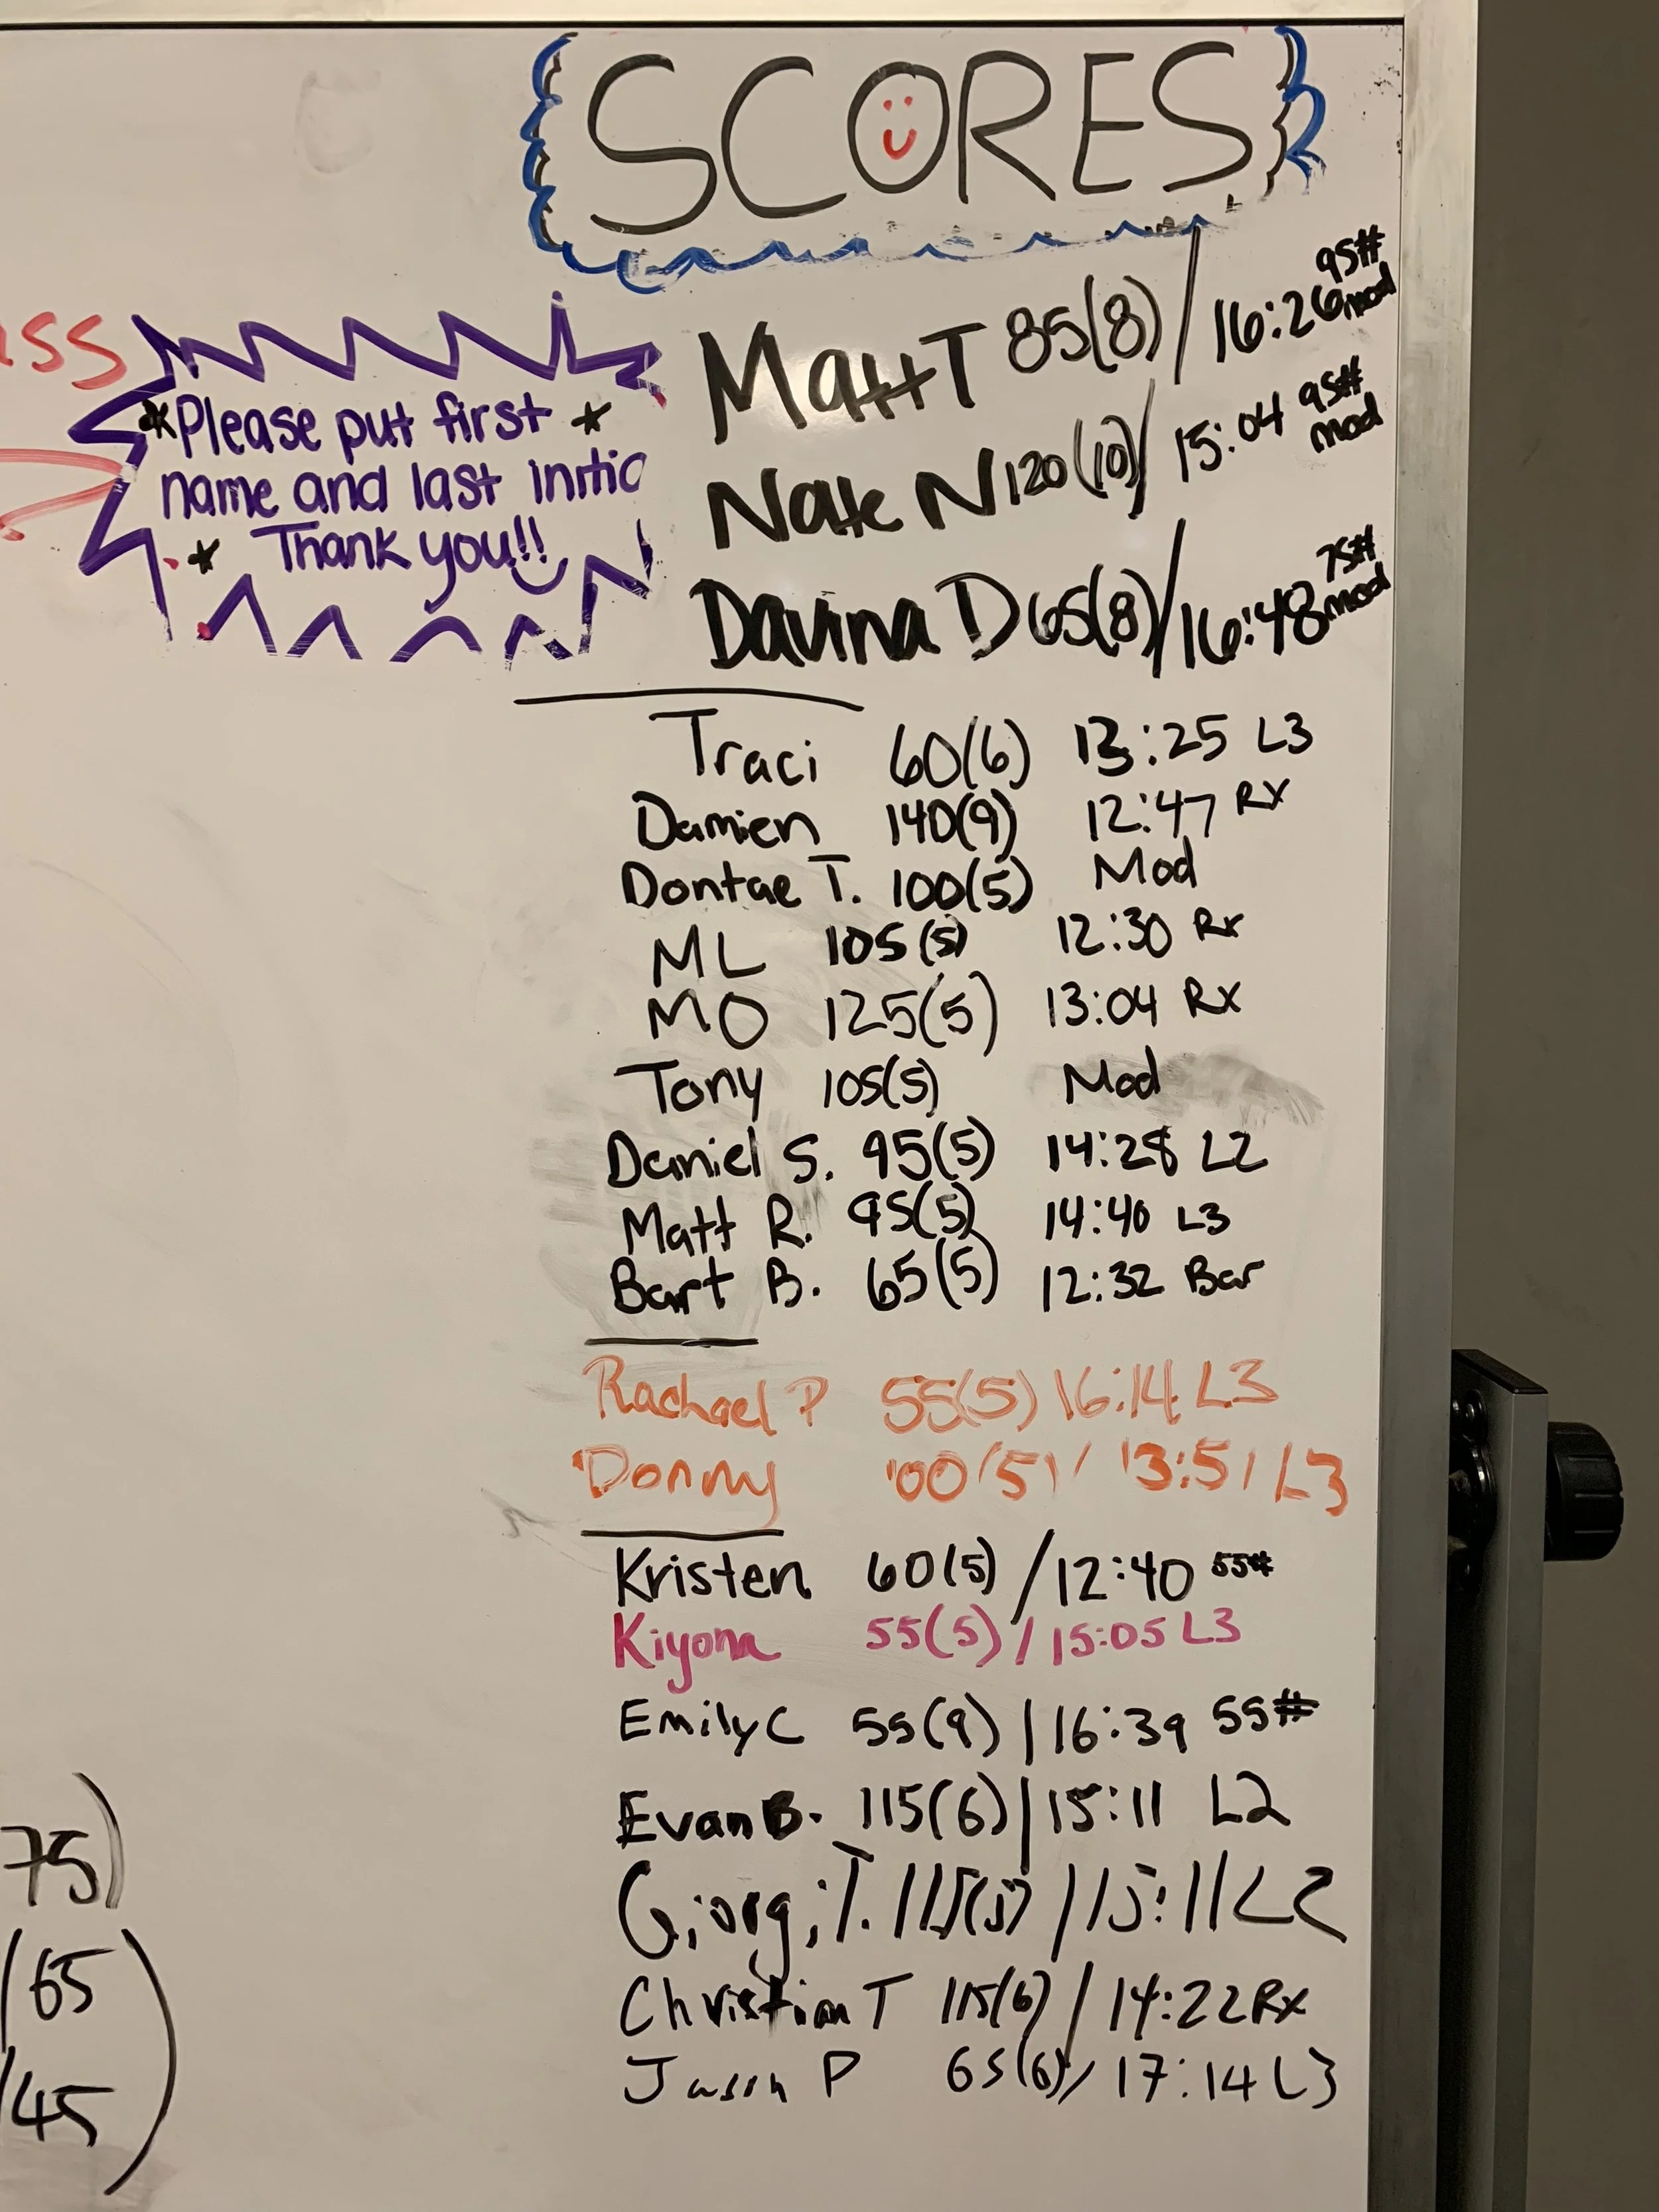 SCORES
ass
*Please put first *
name and last initia
* Thank you!!
Matt T 85(8) / 16:26 95# mod
Nate N 120(10) / 15:04 95# mod
Davina D 65(8) / 16:48 75# mod
Traci 60(6) 13:25 L3
Damien 140(9) 12:47 RX
Dontae T. 100(5) Mod
ML 105(5) 12:30 Rx
MO 125(5) 13:04 RX
Tony 105(5) Mod
Daniel S. 95(5) 14:28 L2
Matt R. 95(5) 14:40 L3
Bart B. 65(5) 12:32 Bar
Rachael P 55(5) 16:14 L3
Donny 100(5) / 13:51 L3
Kristen 60(5) / 12:40 55#
Kiyona 55(5) / 15:05 L3
Emily C 55(9) | 16:39 55#
Evan B. 115(6) | 15:11 L2
Giorgi T. 115(5) / 15:11 L2
Christian T 115(6) / 14:22 RX
Jason P 65(6) / 17:14 L3
75)
(65
/45)